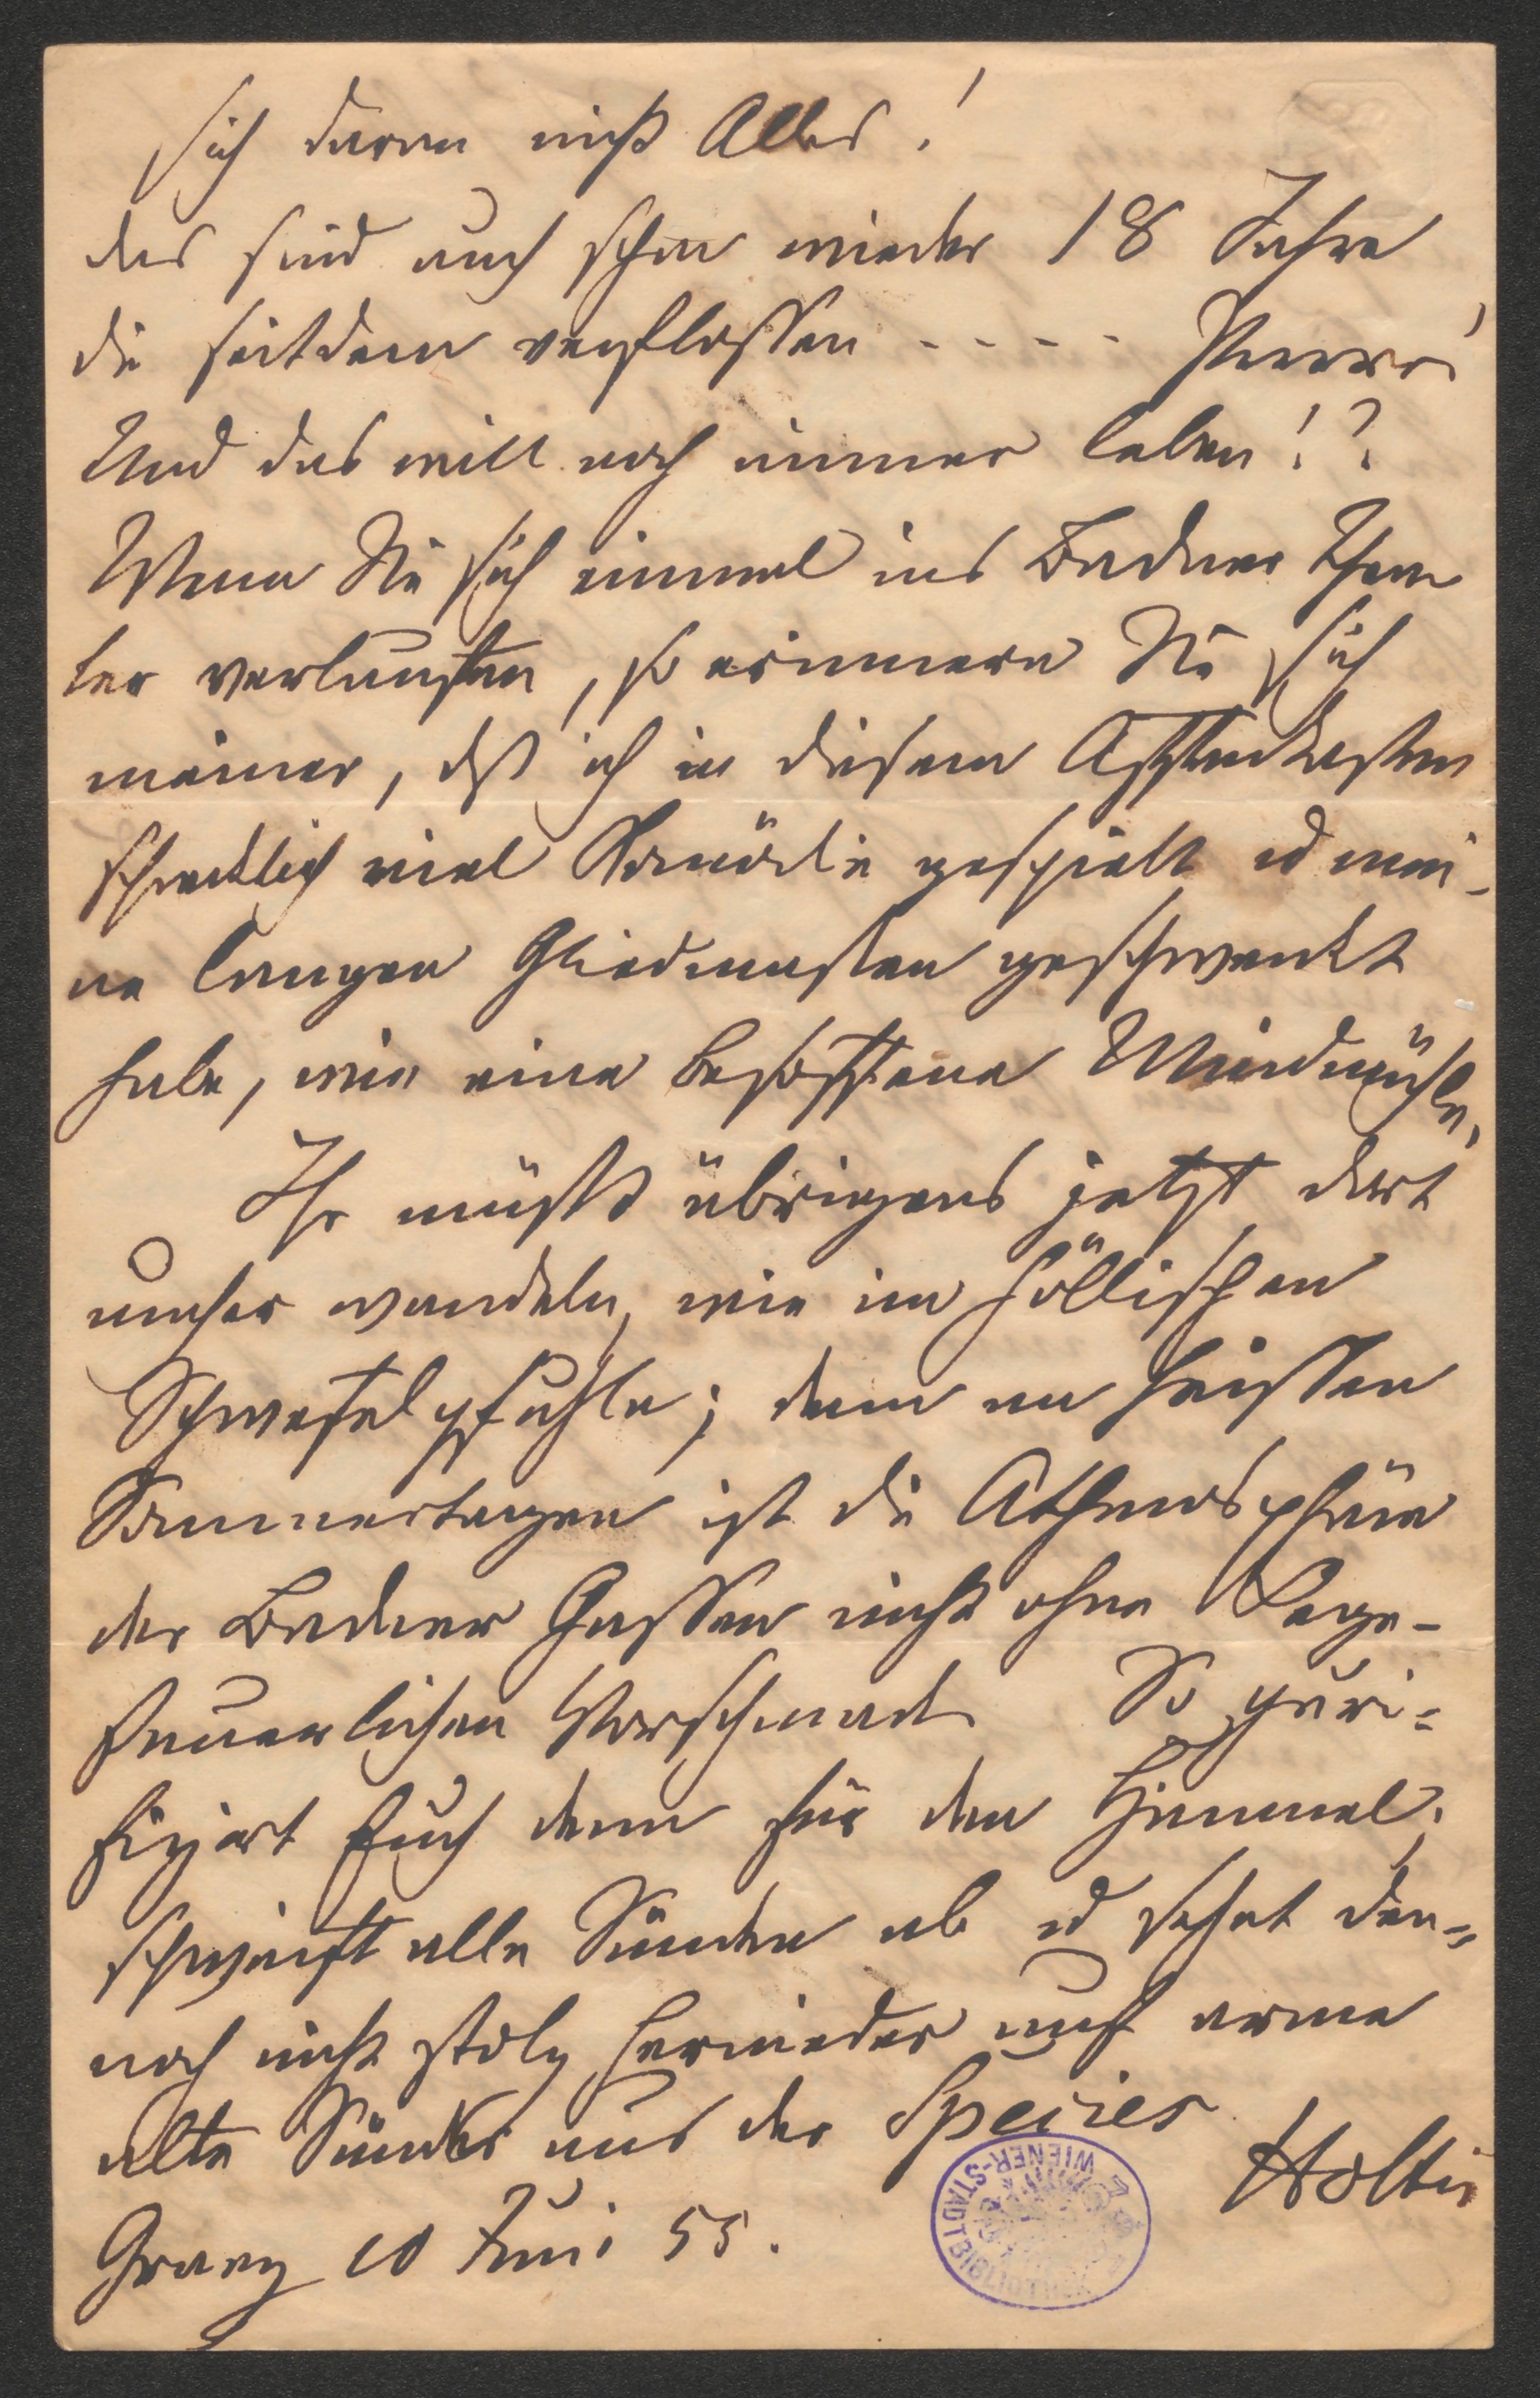 sich daran nicht Alles!
das sind auch schon wieder 18 Jahre
die seitdem verflossen - - - - -
Und das will noch immer leben!?
Wenn Sie sich einmal ins Badner Thea
ter verlaufen, so erinnern Sie sich
meiner, dß ich in diesem Affenkasten
schrecklich viel Komödie gespielt ud mei-
ne langen Gliedmaßen geschwenkt
habe, wie eine besoffene Windmühle.
Ihr müßt übrigens jetzt dort
umher wandeln, wie im höllischen
Schwefelpfuhle; denn an heißen
Sommertagen ist die Athmosphäre
der Badner Gassen nicht ohne Fege-
feuerlichen Vorschmack. So puri=
fizirt Euch denn für den Himmel,
schweift alle Sünden ab ud sehet den=
noch nicht stolz hernieder auf arme
alte Sünder aus der Species
Holtei
Graez 10 Juni 55.
WIENER-STADTBIBLIOTHEK